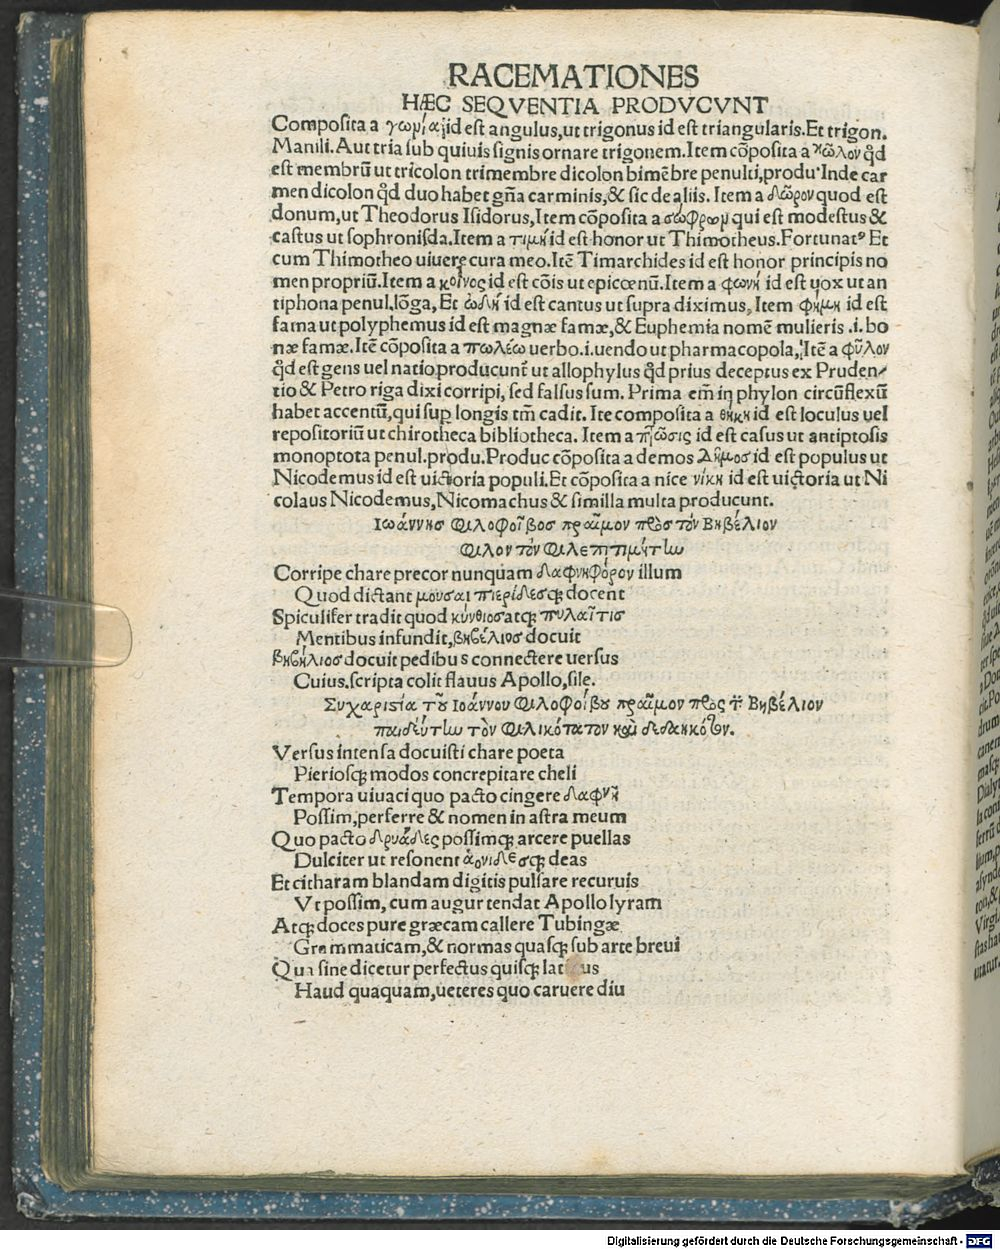 RACEMATIONES
HÆC SEQVENTIA PRODVCVNT
Composita a γωνία id est angulus, ut trigonus id est triangularis. Et trigon.
Manili. Aut tria sub quiuis signis ornare trigonem. Item cōposita a κῶλον qđ
est membrū ut tricolon trimembre dicolon bimēbre penulti, produ. Inde car
men dicolon qđ duo habet gña carminis, & sic de aliis. Item a δῶρον quod est
donum, ut Theodorus Isidorus, Item cōposita a σωφρων qui est modestus &
castus ut sophronisda. Item a τιμή id est honor ut Thimotheus. Fortunatꝰ Et
cum Thimotheo uiuere cura meo. Itē Timarchides id est honor principis no
men propriū. Item a κοῖνος id est cōis ut epicœnū. Item a φωνή id est uox ut an
tiphona penul. lōga, Et ὠδή id est cantus ut supra diximus, Item φήμη id est
fama ut polyphemus id est magnæ famæ, & Euphemia nomē mulieris .i. bo
næ famæ. Itē cōposita a πωλέω uerbo .i. uendo ut pharmacopola, Itē a φῦλον
qđ est gens uel natio producunt ut allophylus qđ prius deceptus ex Pruden⸗
tio & Petro riga dixi corripi, sed falsus sum. Prima em̄ in phylon circūflexū
habet accentū, qui sup longis tm̄ cadit. Ite composita a θήκη id est loculus uel
repositoriū ut chirotheca bibliotheca. Item a πτῶσις id est casus ut antiptosis
monoptota penul. produ. Produc cōposita a demos δῆμος id est populus ut
Nicodemus id est uictoria populi. Et cōposita a nice νίκη id est uictoria ut Ni
colaus Nicodemus, Nicomachus & similla multa producunt.
Ιωάννησ Φιλοφοῖβοσ πρᾶϊμον πρὸσ τὸν Βηβέλιον
Φιλον τὸν
Corripe chare precor nunquam δλαφνηφόρον illum
Quod dictant μοῦσαι πιερίδεσqꝫ docent
Spiculifer tradit quod κύνθιοσ atqꝫ πυλαῖτισ
Mentibus infundit, βηβέλιοσ docuit
βηβήλιος docuit pedibus connectere uersus
Cuius. scripta colit flauus Apollo, sile.
Συχαριςία τοῦ Ιοάννου Φιλοφοίβου πρᾶϊμον πρὸς τ̄ Βηβέλιον
παιδεύτω τὸν Φιλικότατον καὶ
Versus intensa docuisti chare poeta
Pieriosqꝫ modos concrepitare cheli
Tempora uiuaci quo pacto cingere δλαφνῆ
Possim, perferre & nomen in astra meum
Quo pacto δρυάδες possimqꝫ arcere puellas
Dulciter ut resonent ἀονιδεσqꝫ deas
Et citharam blandam digitis pulsare recuruis
Vt possim, cum augur tendat Apollo lyram
Atqꝫ doces pure græcam callere Tubingæ
Grammaticam, & normas quasqꝫ sub arte breui
Qua sine dicetur perfectus quisqꝫ latinus
Haud quaquam, ueteres quo caruere diu
Digitalisierung gefördert durch die Deutsche Forschungsgemeinschaft - DFG